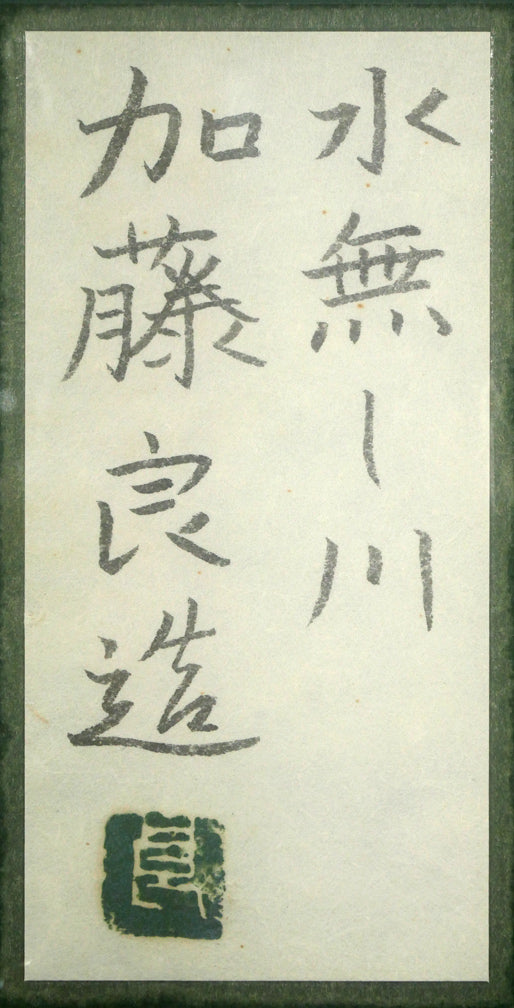 水無し川
加藤良造
良